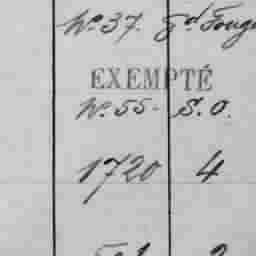 No. 37. gd Foug
EXEMPTÉ
No. 55- S.O.
1720 4